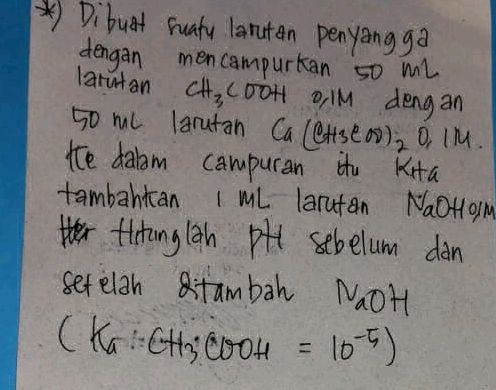 *) Dibuat suatu larutan penyangga
dengan mencampurkan 50 mL
larutan CH₃COOH 0,1M dengan
50 mL larutan Ca(CH₃COO)₂ 0,1M.
Ke dalam campuran itu kita
tambahkan 1 mL larutan NaOH 0,1M
Hitunglah pH sebelum dan
setelah ditambah NaOH
(Ka CH₃COOH = 10⁻⁵)